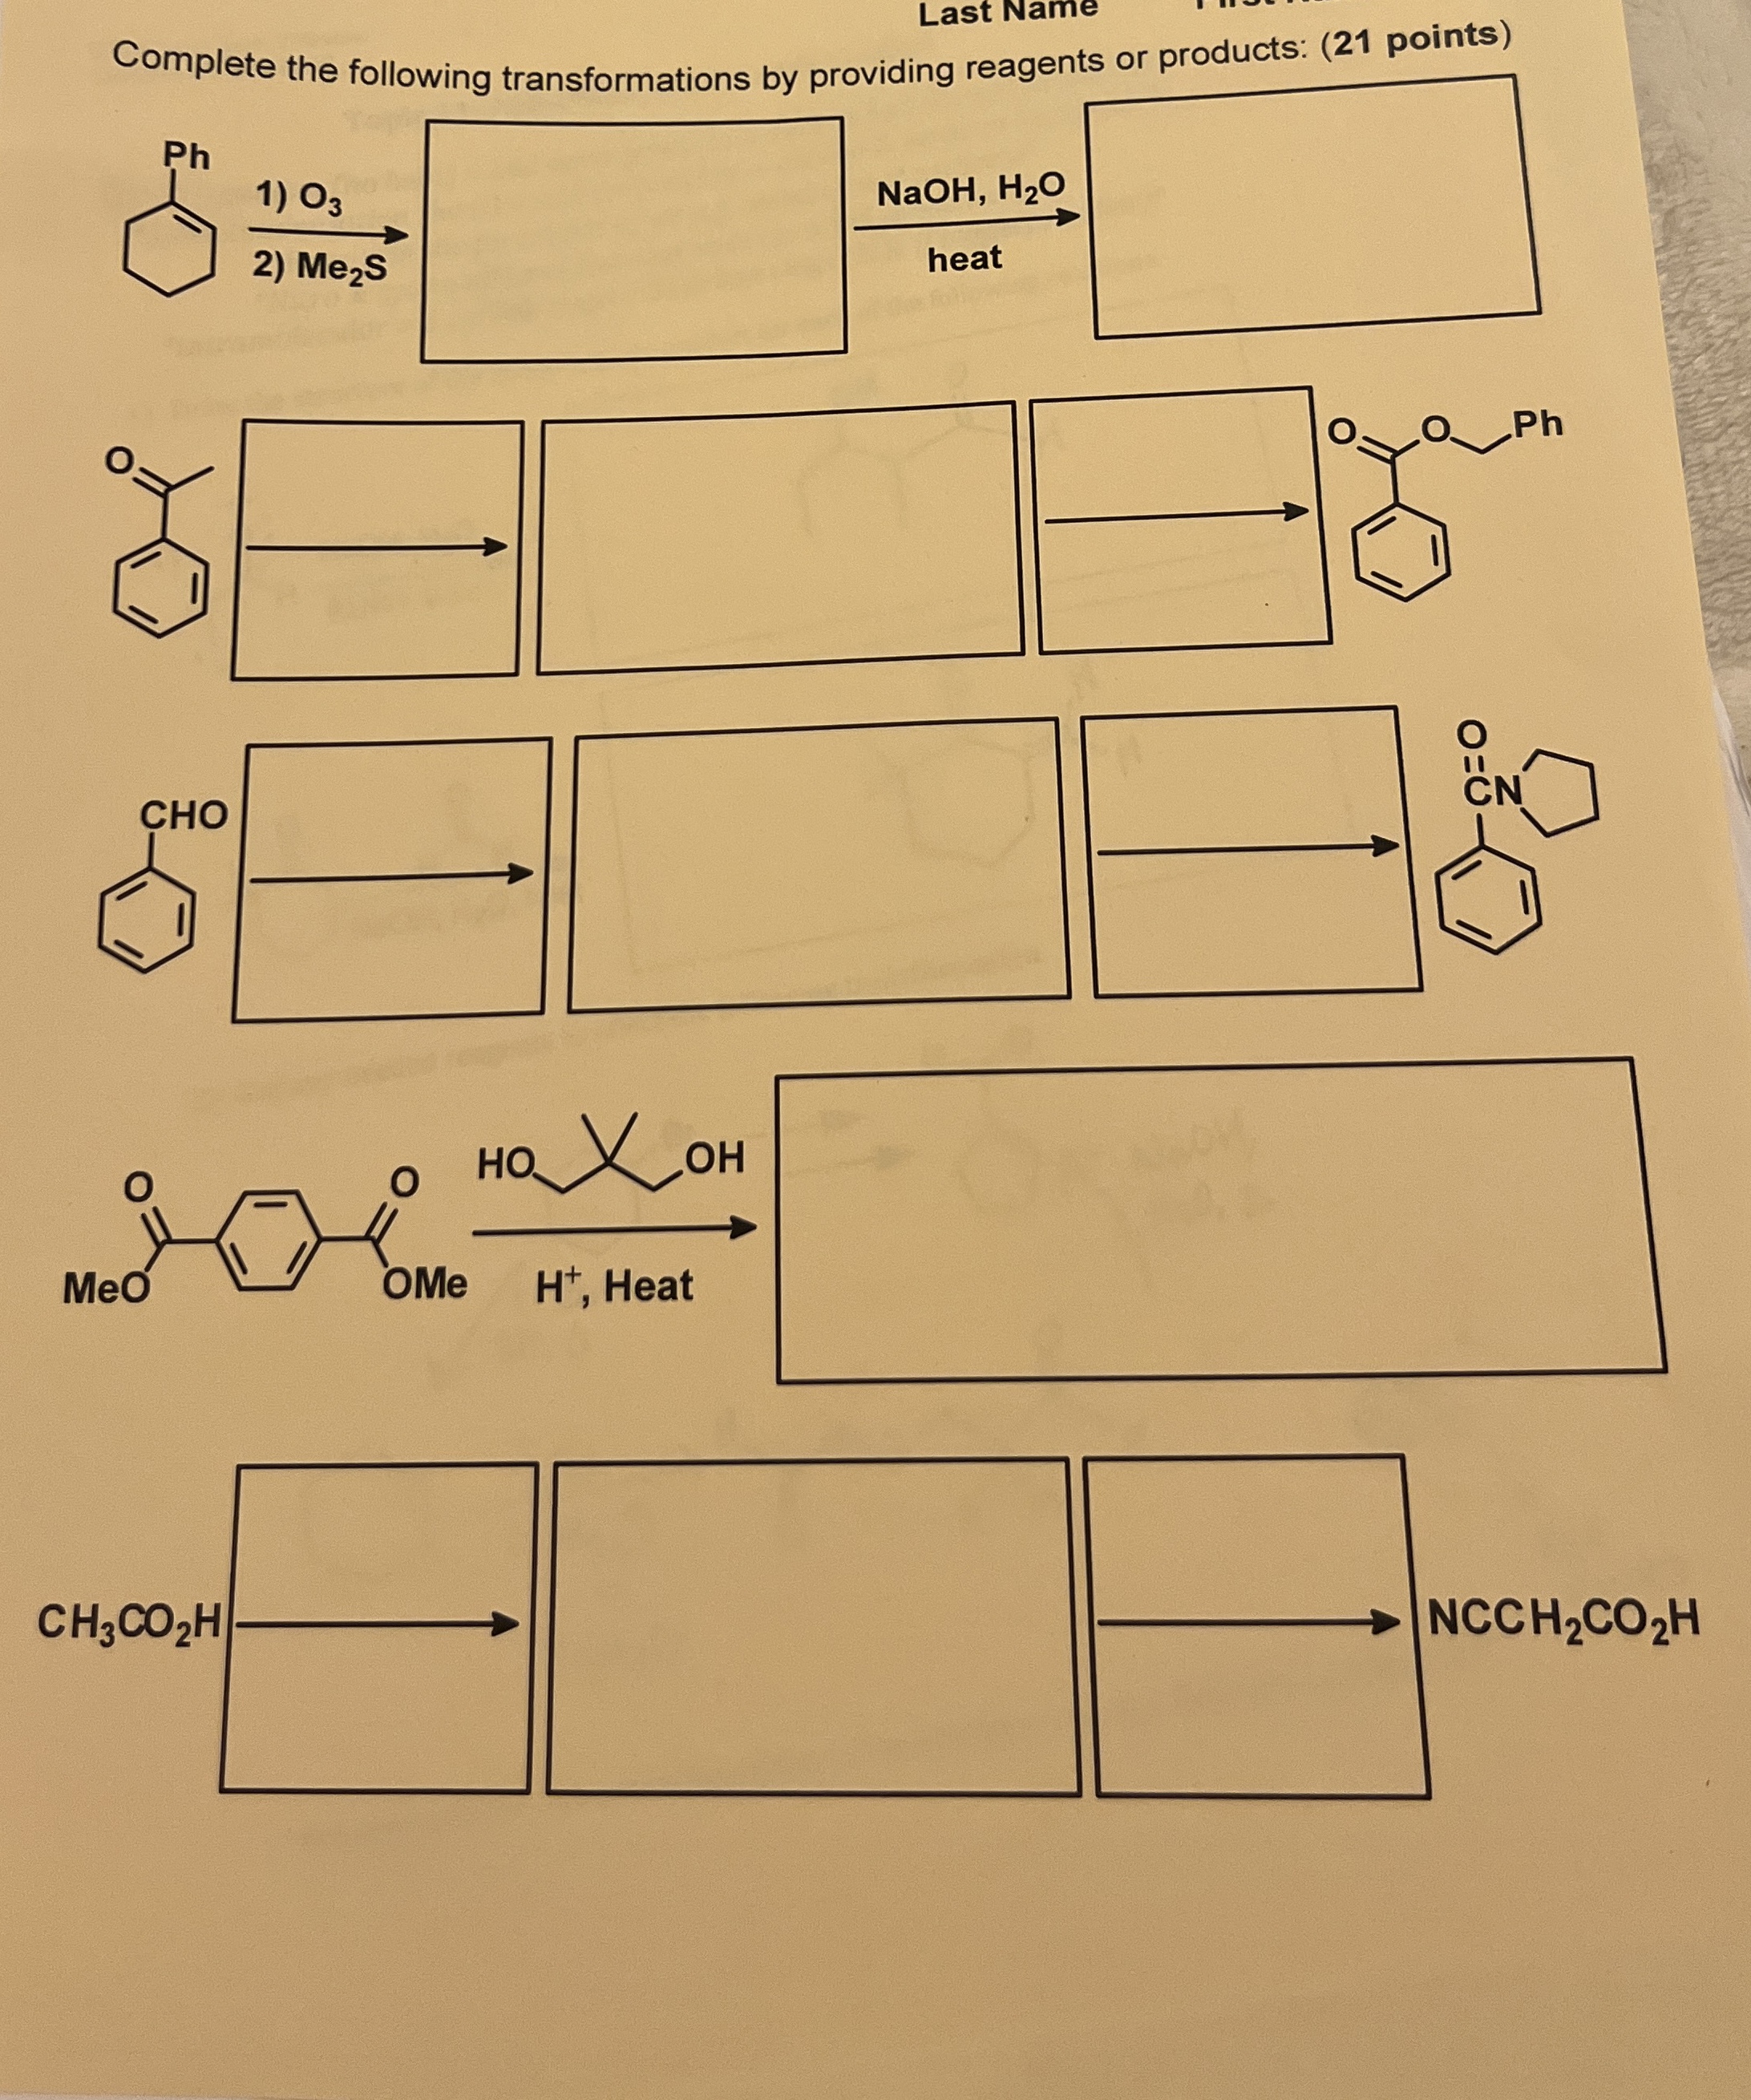 Last Name
Complete the following transformations by providing reagents or products: (21 points)
Ph
1) O₃
2) Me₂S
NaOH, H₂O
heat
O
O
O
Ph
CHO
O
CN
HO
OH
O
O
MeO
OMe
H⁺, Heat
CH₃CO₂H
NCCH₂CO₂H